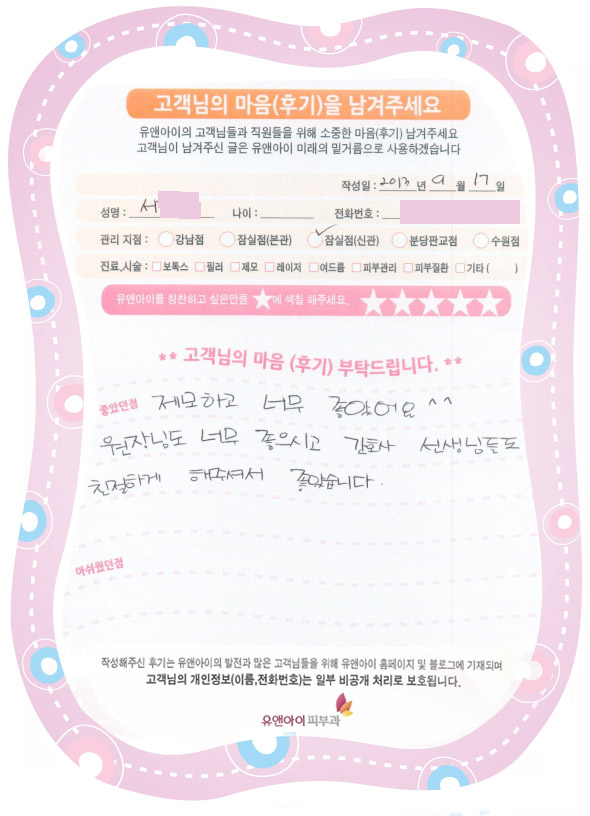 고객님의 마음(후기)을 남겨주세요
유앤아이의 고객님들과 직원들을 위해 소중한 마음(후기) 남겨주세요
고객님이 남겨주신 글은 유앤아이 미래의 밑거름으로 사용하겠습니다
작성일 : 2017 년 9 월 17 일
성명 : 서 나이 : 전화번호 :
관리 지점 : 강남점 잠실점(본관) 잠실점(신관) 분당판교점 수원점
진료,시술 : 보톡스 필러 제모 레이저 여드름 피부관리 피부질환 기타 ( )
유앤아이를 칭찬하고 싶은만큼 ★에 색칠 해주세요. ★★★★★
** 고객님의 마음 (후기) 부탁드립니다. **
좋았던점 제모하고 너무 좋았어요 ^^
원장님도 너무 좋으시고 간호사 선생님들도
친절하게 해주셔서 좋았습니다.
아쉬웠던점
작성해주신 후기는 유앤아이의 발전과 많은 고객님들을 위해 유앤아이 홈페이지 및 블로그에 기재되며
고객님의 개인정보(이름,전화번호)는 일부 비공개 처리로 보호됩니다.
유앤아이피부과